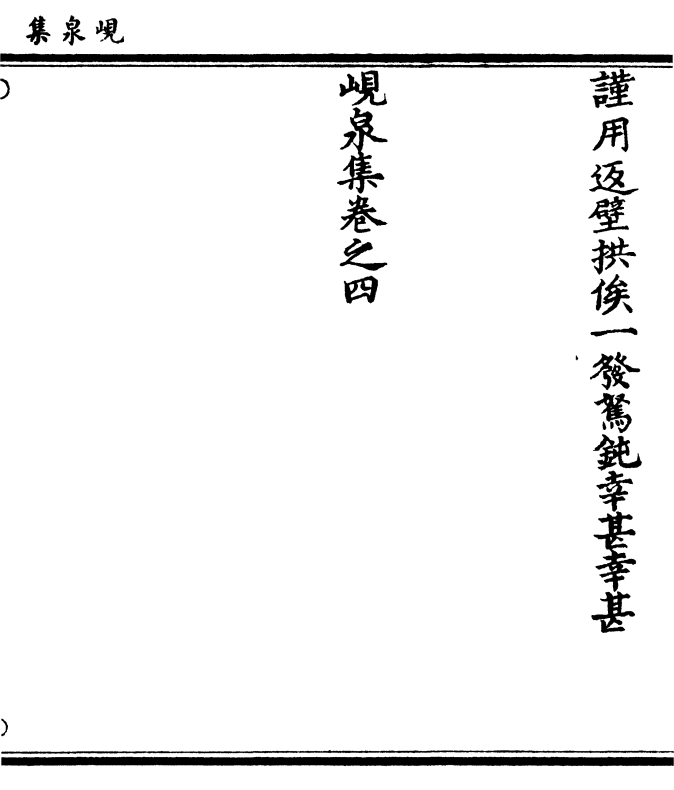 峴泉集
謹用返壁拱俟一發駑鈍幸甚幸甚
峴泉集卷之四